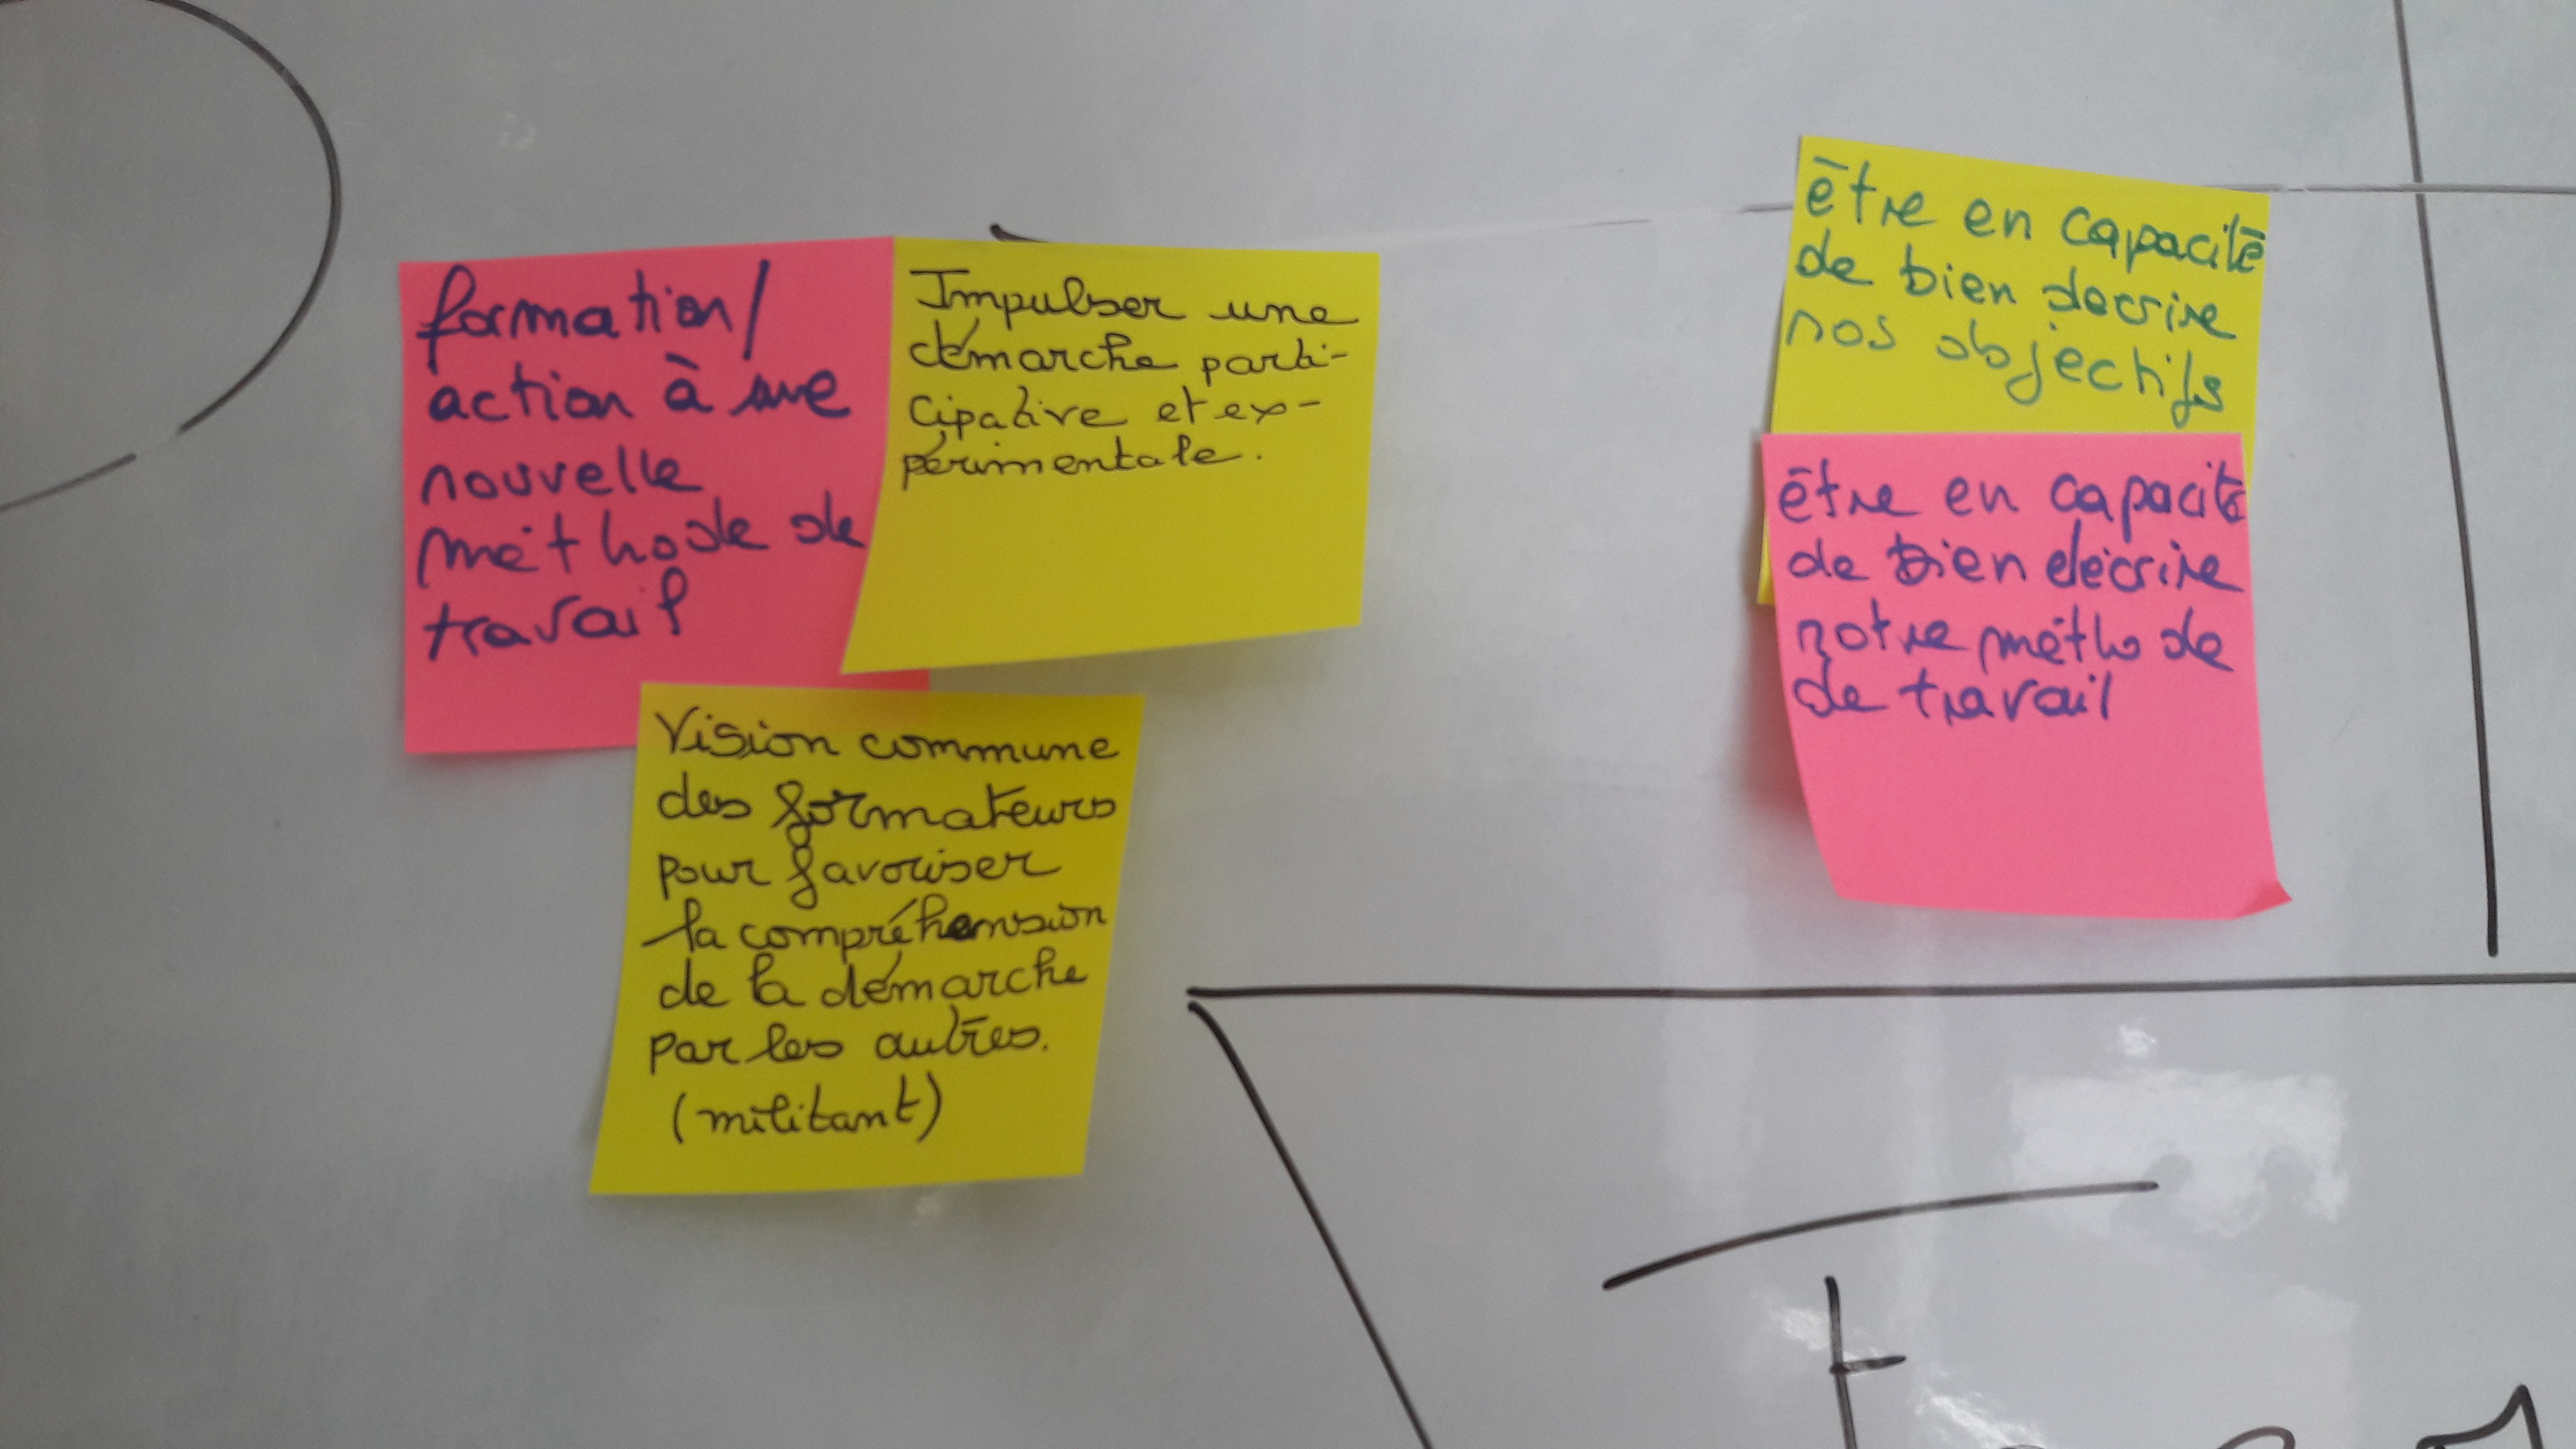 formation/
action à une
nouvelle
méthode de
travail
Impulser une
démarche parti-
cipative et ex-
périmentale.
Vision commune
des formateurs
pour favoriser
la compréhension
de la démarche
par les autres.
(militant)
être en capacité
de bien decrire
nos objectifs
être en capacité
de bien décrire
notre méthode
de travail